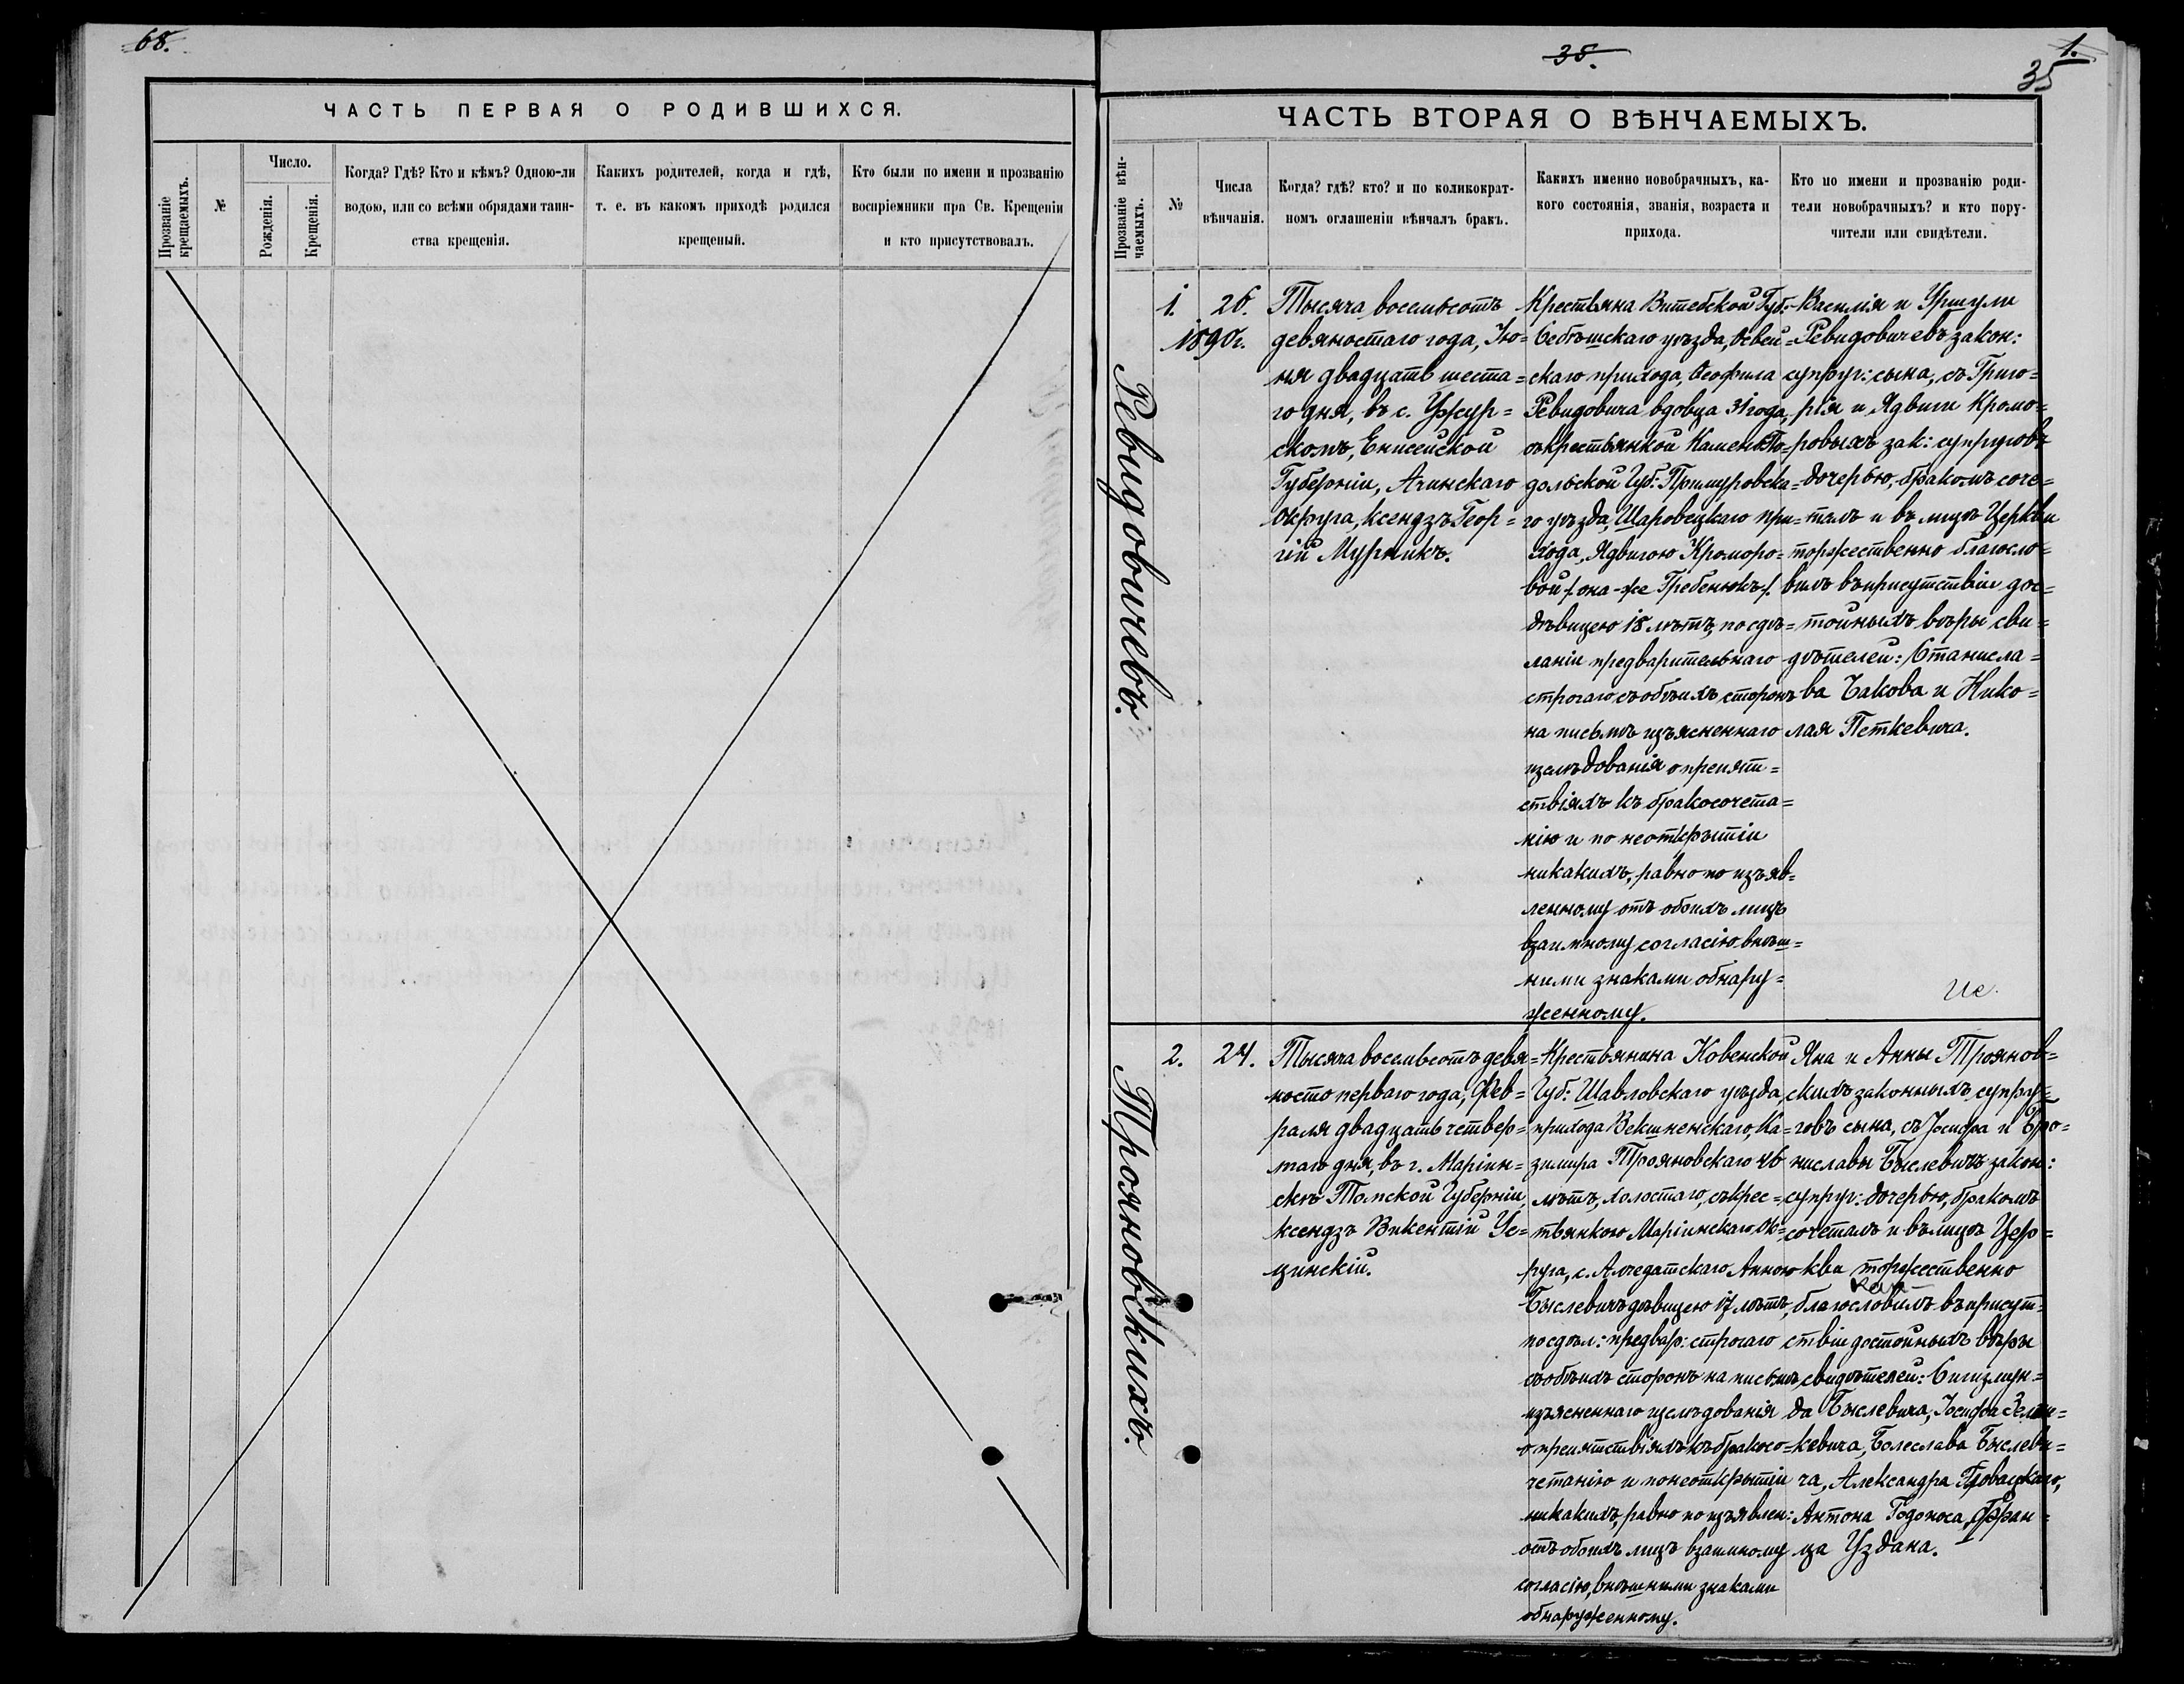 68.
ЧАСТЬ ПЕРВАЯ О РОДИВШИХСЯ.
Прозваніе крещаемыхъ.
№
Число.
Рожденія.
Крещенія.
Когда? Гдѣ? Кто и кѣмъ? Одною-ли
водою, или со всѣми обрядами таин-
ства крещенія.
Какихъ родителей, когда и гдѣ,
т. е. въ какомъ приходѣ родился
крещеный.
Кто были по имени и прозванію
воспріемники при Св. Крещеніи
и кто присутствовалъ.
35.
1.
35
ЧАСТЬ ВТОРАЯ О ВѢНЧАЕМЫХЪ.
Прозваніе вѣн-
чаемыхъ.
№
Числа
вѣнчанія.
Когда? гдѣ? кто? и по коликократ-
номъ оглашеніи вѣнчалъ бракъ.
Какихъ именно новобрачныхъ, ка-
кого состоянія, званія, возраста и
прихода.
Кто по имени и прозванію роди-
тели новобрачныхъ? и кто пору-
чители или свидѣтели.
Ревидовичевъ.
1.
26.
1890 г.
Тысяча восемьсотъ
девяностаго года, Iю=
ня двадцать шеста=
го дня, въ с. Ужур=
скомъ, Енисейской
Губерніи, Ачинскаго
округа, ксендзъ Геор=
гій Мурникъ.
Крестьяна Витебской Губ:
Себѣшскаго уѣзда, Освей=
скаго прихода, Ѳеофила
Ревидовича вдовца 31 года,
съ крестьянкой Каменъ По=
дольской Губ: Прищуровска=
го уѣзда, Шаровецкаго при=
хода, Ядвигою Кроморо=
вой /. она-же Гребенюкъ /.
дѣвицею 18 лѣтъ, по сдѣ=
ланіи предварительнаго
строгаго съ обѣихъ сторонъ
на письмѣ изъясненнаго
изслѣдованія о препят=
ствіяхъ къ бракосочета=
нію и по неоткрытіи
никакихъ, равно по изъяв=
ленному отъ обоихъ лицъ
взаимному согласію внѣш=
ними знаками обнару=
женному.
Василія и Уршули
Ревидовичевъ закон:
супруг: сына, съ Григо=
рія и Ядвиги Кромо=
ровыхъ зак: супруговъ
дочерью, бракомъ соче=
талъ и въ лицѣ Церкви
торжественно благосло=
вилъ въ присутствіи дос=
тойныхъ вѣры сви=
дѣтелей: Станисла=
ва Бакова и Нико=
лая Петкевича.
Трояновскихъ.
2.
24.
Тысяча восемьсотъ девя=
носто перваго года, Фев=
раля двадцать четвер=
таго дня, въ г. Маріин=
скѣ Томской Губерніи
ксендзъ Викентій Уе=
цинскій.
Крестьянина Ковенской
Губ: Шавловскаго уѣзда,
прихода Векшненскаго, Ка=
зимира Трояновскаго 26
лѣтъ, холостаго, съ крес=
тьянкою Маріинскаго Ок=
руга, с. Алчедатскаго Анною
Быслевичъ дѣвицею 17 лѣтъ,
по сдѣл: предвар: строгаго
съ обѣихъ сторонъ на письмѣ
изъясненнаго изслѣдованія
о препятствіяхъ къ бракосо=
четанію и по неоткрытіи
никакихъ, равно по изъявлен:
отъ обоихъ лицъ взаимному
согласію, внѣшними знаками
обнаруженному.
Яна и Анны Троянов=
скихъ законныхъ супру=
говъ сына, съ Іосифа и Бро=
ниславы Быслевичъ закон:
супруг: дочерью, бракомъ
сочеталъ и въ лицѣ Цер=
кви торжественно
благословилъ въ присут=
ствіи достойныхъ вѣры
свидѣтелей: Сигизмун=
да Быслевича, Іосифа
кевича, Болеслава Быслеви=
ча, Александра
Антона Годоноса, Фран=
ца Уздана.